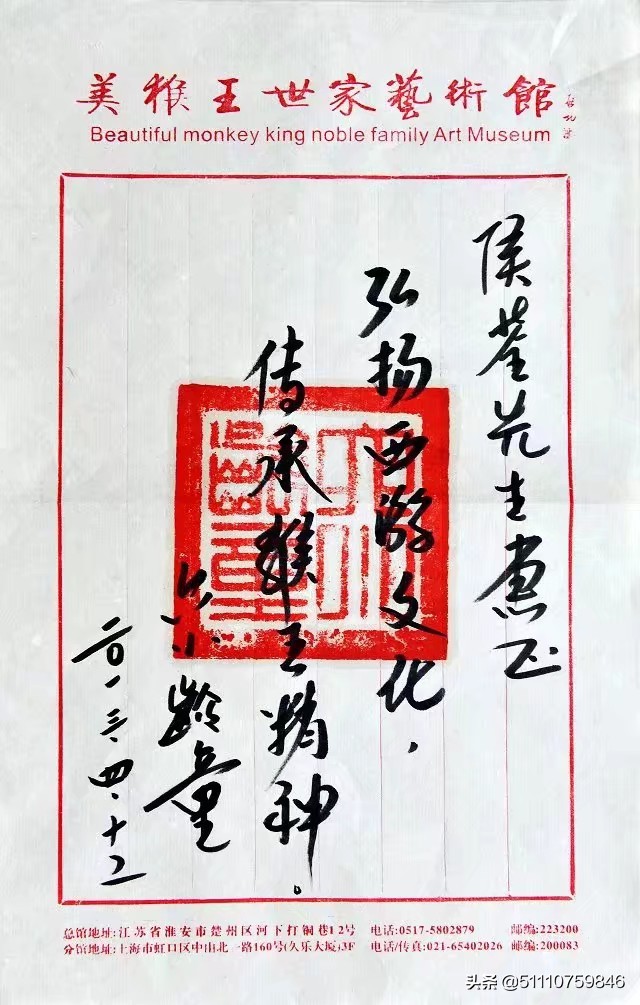 美猴王世家藝術館
启功题
Beautiful monkey king noble family Art Museum
侯荃先生惠正
弘扬西游文化，
传承猴王精神。
六小龄童
二〇一三.四.十二
六小齡童
总馆地址:江苏省淮安市楚州区河下打铜巷12号 电话:0517-5802879 邮编:223200
分馆地址:上海市虹口区中山北一路160号(久乐大厦)3F 电话/传真:021-65402026 邮编:200083
头条 @51110759846